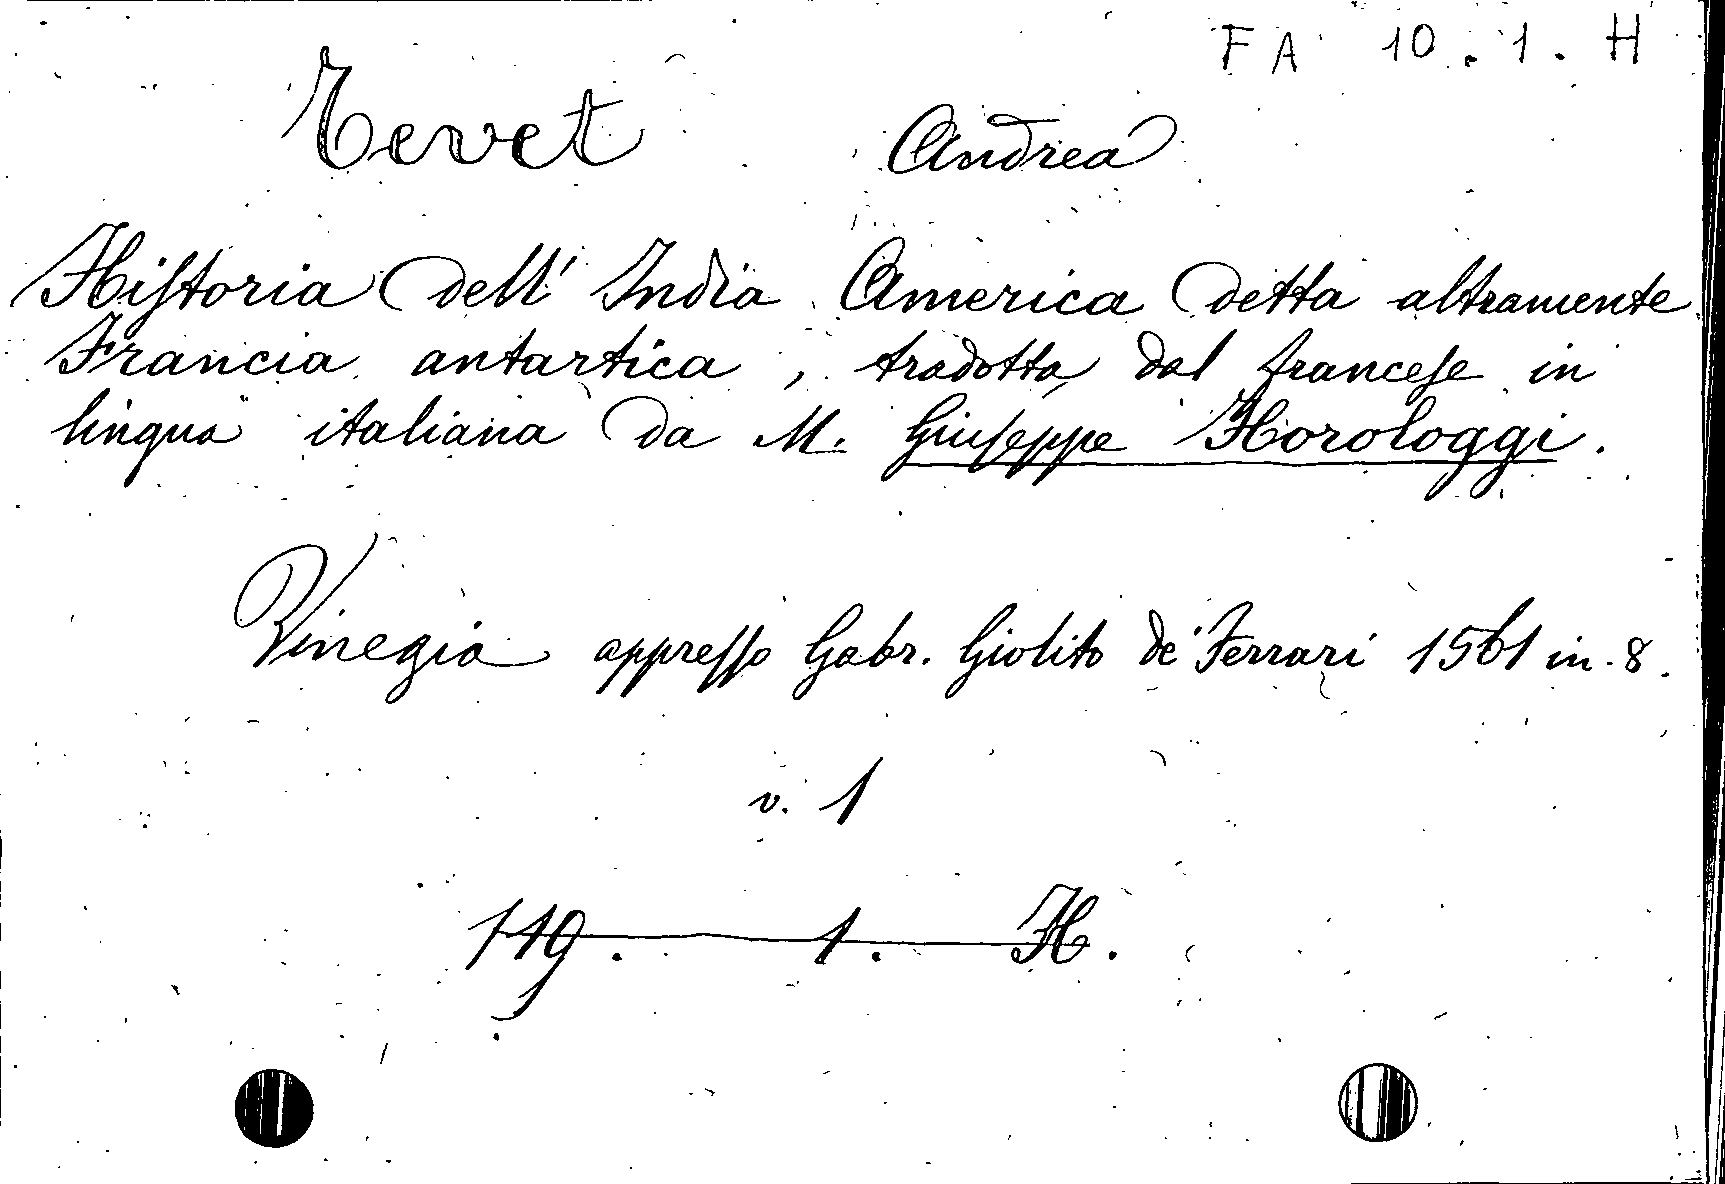 FA 10.1.H
Tevet Andrea
Hiſtoria dell' India America detta altramente
Francia antartica, tradotta dal franceſe in
lingua italiana da M. Giuſeppe Horologgi.
Vinegia appreſſo Gabr. Giolito de' Ferrari 1561 in 8.
v. 1
119. 1. H.